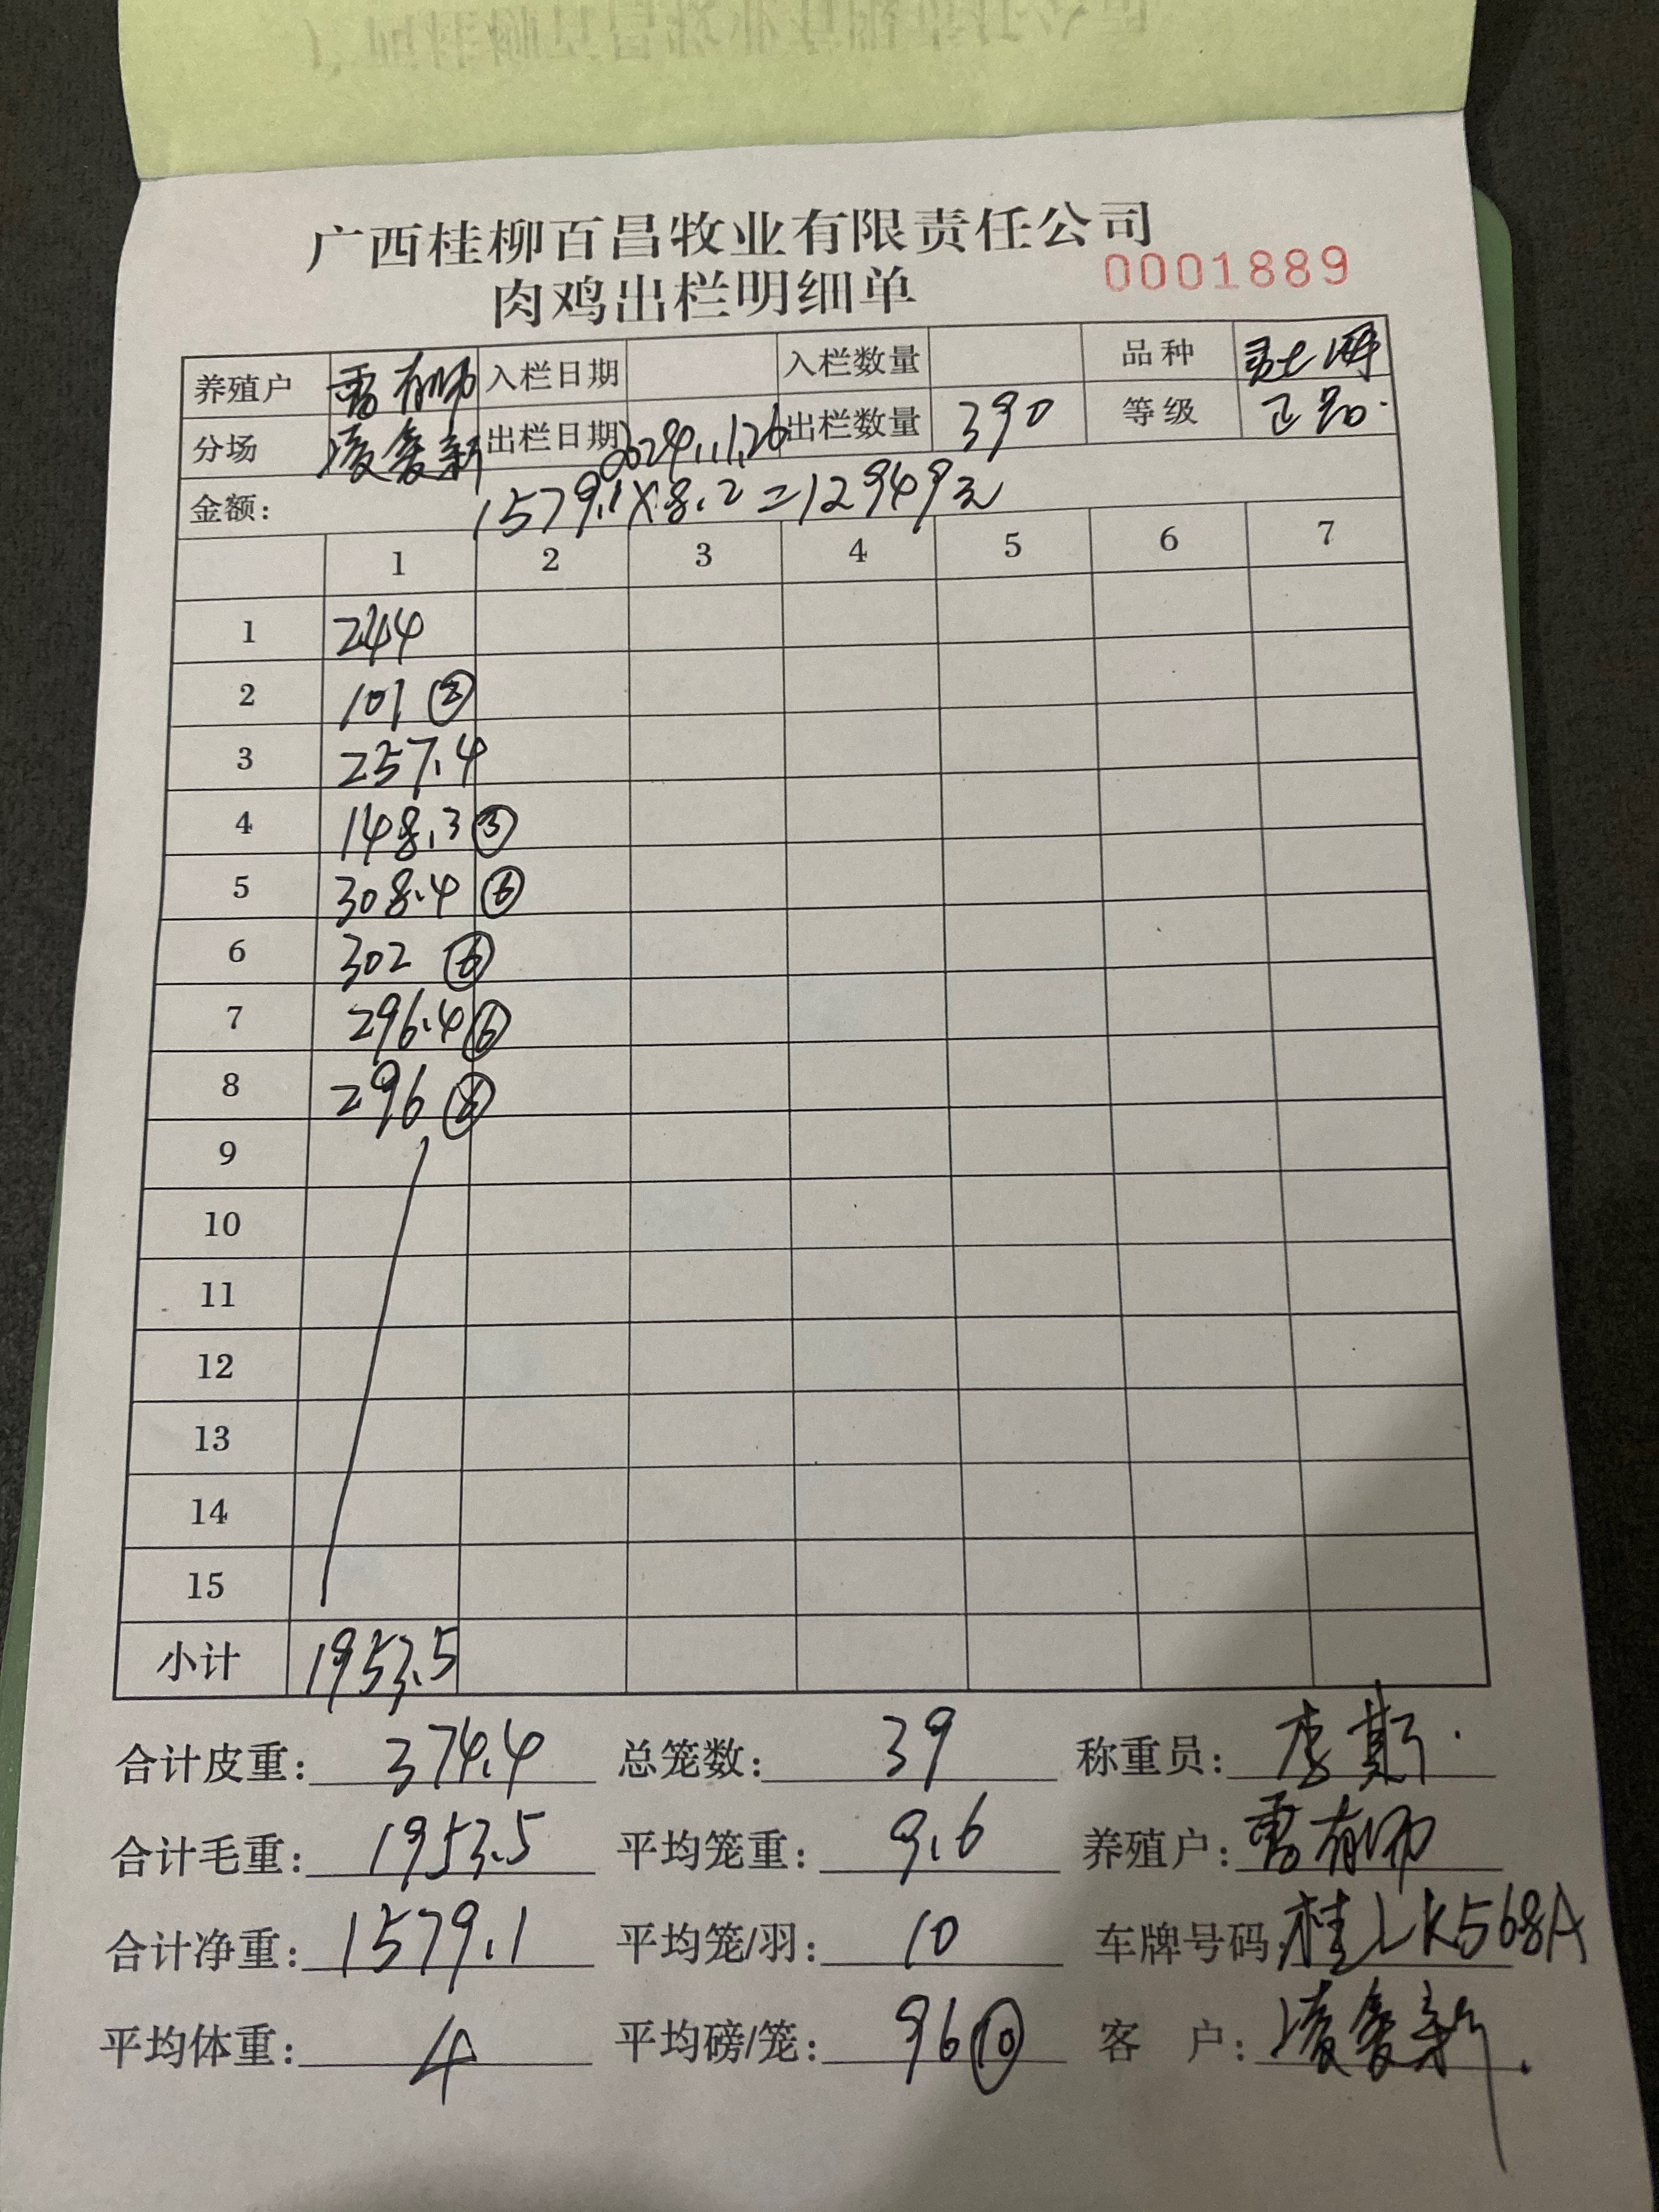 广西桂柳百昌牧业有限责任公司
肉鸡出栏明细单 0001889
养殖户 雷有 入栏日期 入栏数量 品种
分场 凌爱新 出栏日期 2024.11.26 出栏数量 390 等级 正品
金额: 1579.1×8.2=12949元
1 2 3 4 5 6 7
1 244
2 101 ②
3 257.4
4 148.3 ③
5 308.4 ⑥
6 302 ⑥
7 296.4 ⑥
8 296 ⑥
9
10
11
12
13
14
15
小计 1953.5
合计皮重: 374.4 总笼数: 39 称重员: 李斯
合计毛重: 1953.5 平均笼重: 9.6 养殖户: 雷有
合计净重: 1579.1 平均笼/羽: 10 车牌号码: 桂LK568A
平均体重: 4 平均磅/笼: 96 ⑩ 客 户: 凌爱新